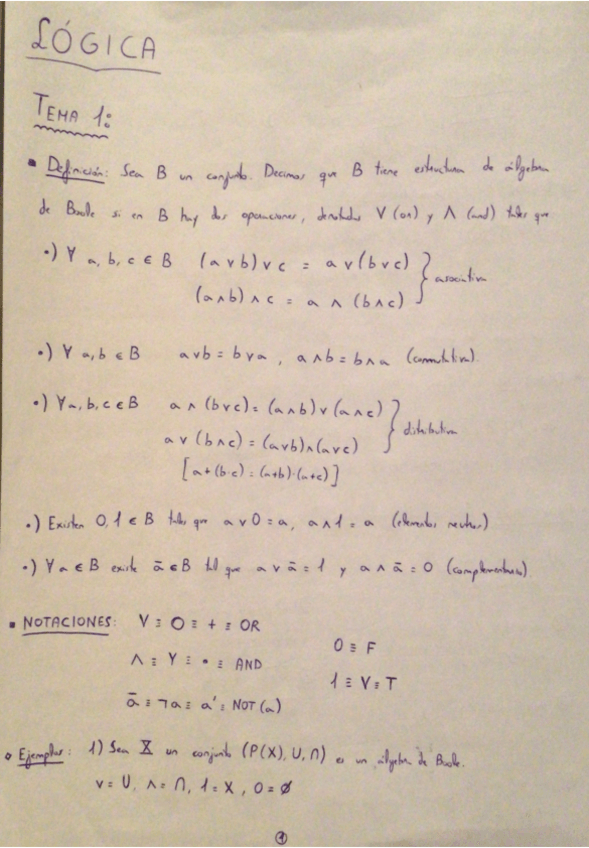 LÓGICA
TEMA 1:
▪ Definición: Sea B un conjunto. Decimos que B tiene estructura de álgebra
de Boole si en B hay dos operaciones, denotadas ∨ (or) y ∧ (and) tales que
•) ∀ a, b, c ∈ B (a∨b)∨c = a∨(b∨c)
(a∧b)∧c = a ∧ (b∧c) } asociativa
•) ∀ a,b ∈ B a∨b = b∨a , a∧b = b∧a (conmutativa).
•) ∀a,b,c ∈ B a∧(b∨c) = (a∧b)∨(a∧c)
a∨(b∧c) = (a∨b)∧(a∨c) } distributiva
[a+(b·c) = (a+b)·(a+c)]
•) Existen 0,1 ∈ B tales que a∨0 = a, a∧1 = a (elementos neutros)
•) ∀a∈B existe ā∈B tal que a∨ā = 1 y a∧ā = 0 (complementario)
▪ NOTACIONES: ∨ ≡ O ≡ + ≡ OR
0 ≡ F
∧ ≡ Y ≡ • ≡ AND
1 ≡ V ≡ T
ā ≡ ¬a ≡ a' ≡ NOT (a)
Ejemplos: 1) Sea X un conjunto (P(X), ∪, ∩) es un álgebra de Boole.
∨ = ∪, ∧ = ∩, 1 = X , 0 = ∅
1